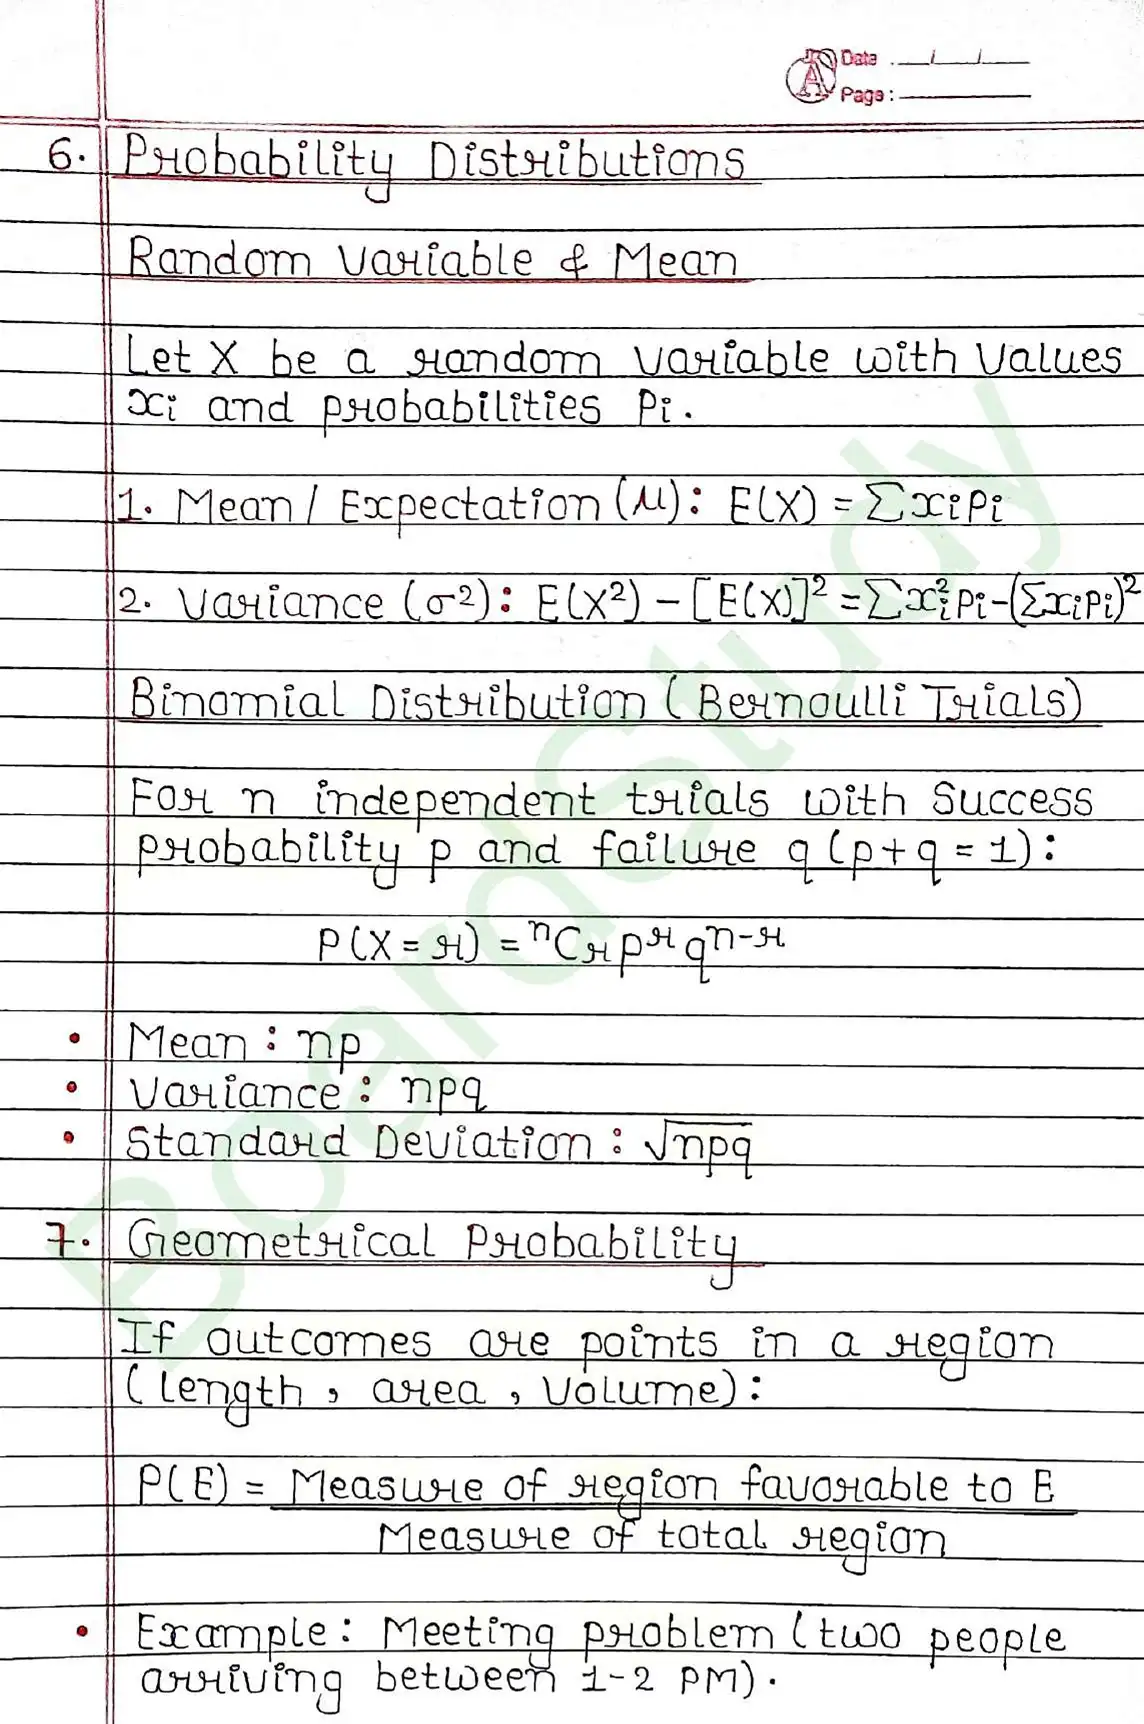 Date : __/__/__
Page :
6. Probability Distributions
Random Variable & Mean
Let X be a random variable with values
xi and probabilities Pi.
1. Mean / Expectation (μ): E(X) = ∑xipi
2. Variance (σ²): E(X²) - [E(X)]² = ∑xi²pi - (∑xipi)²
Binomial Distribution (Bernoulli Trials)
For n independent trials with Success
probability p and failure q (p+q = 1):
P(X = r) = ⁿCr pʳ qⁿ⁻ʳ
• Mean : np
• Variance : npq
• Standard Deviation : √npq
7. Geometrical Probability
If outcomes are points in a region
(length, area, volume):
P(E) = Measure of region favorable to E
Measure of total region
• Example: Meeting problem (two people
arriving between 1-2 PM).
BoardStudy